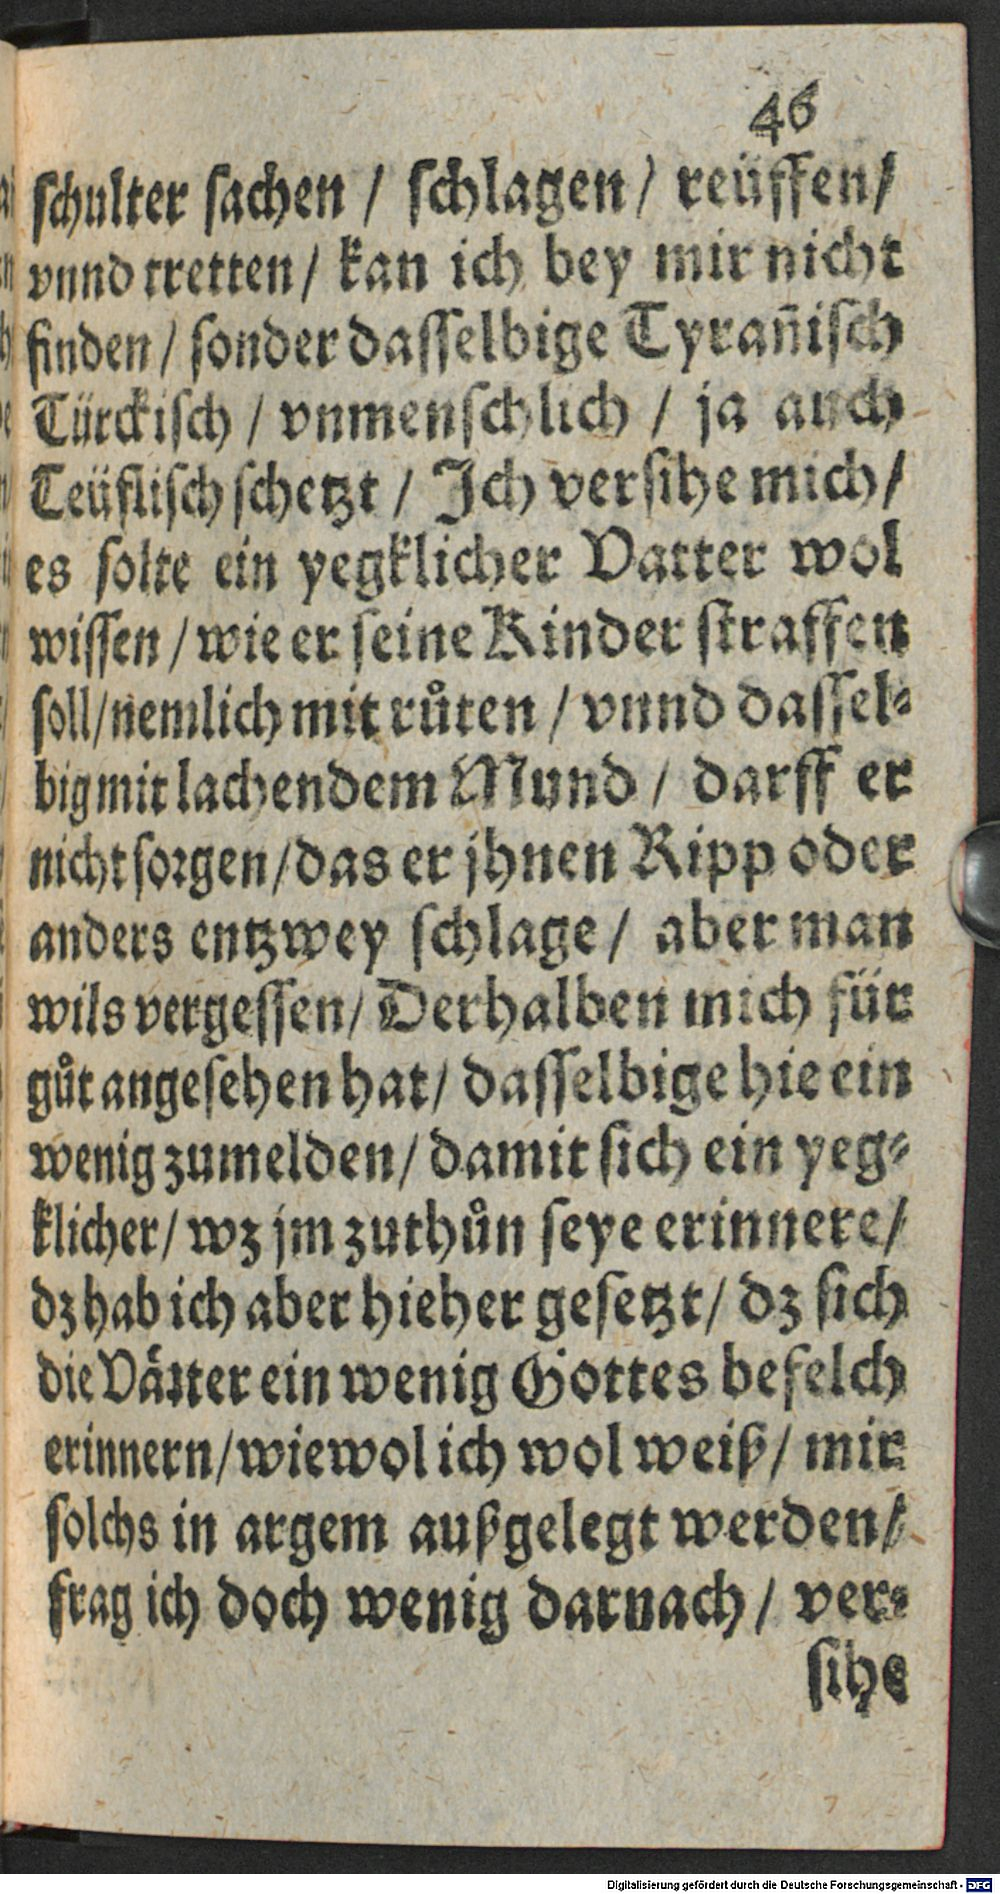 46
schulter sachen / schlagen / reüffen /
vnnd tretten / kan ich bey mir nicht
finden / sonder dasselbige Tyrañisch
Türckisch / vnmenschlich / ja auch
Teüflisch schetzt / Ich versihe mich /
es solte ein yegklicher Vatter wol
wissen / wie er seine Kinder straffen
soll / nemlich mit růten / vnnd dassel-
big mit lachendem Mund / darff er
nicht sorgen / das er jhnen Ripp oder
anders entzwey schlage / aber man
wils vergessen / Derhalben mich für
gůt angesehen hat / dasselbige hie ein
wenig zumelden / damit sich ein yeg-
klicher / wz jm zuthůn seye erinnere /
dz hab ich aber hieher gesetzt / dz sich
die Vaͤtter ein wenig Gottes befelch
erinnern / wiewol ich wol weiß / mir
solchs in argem außgelegt werden /
frag ich doch wenig darnach / ver-
sihe
Digitalisierung gefördert durch die Deutsche Forschungsgemeinschaft - DFG